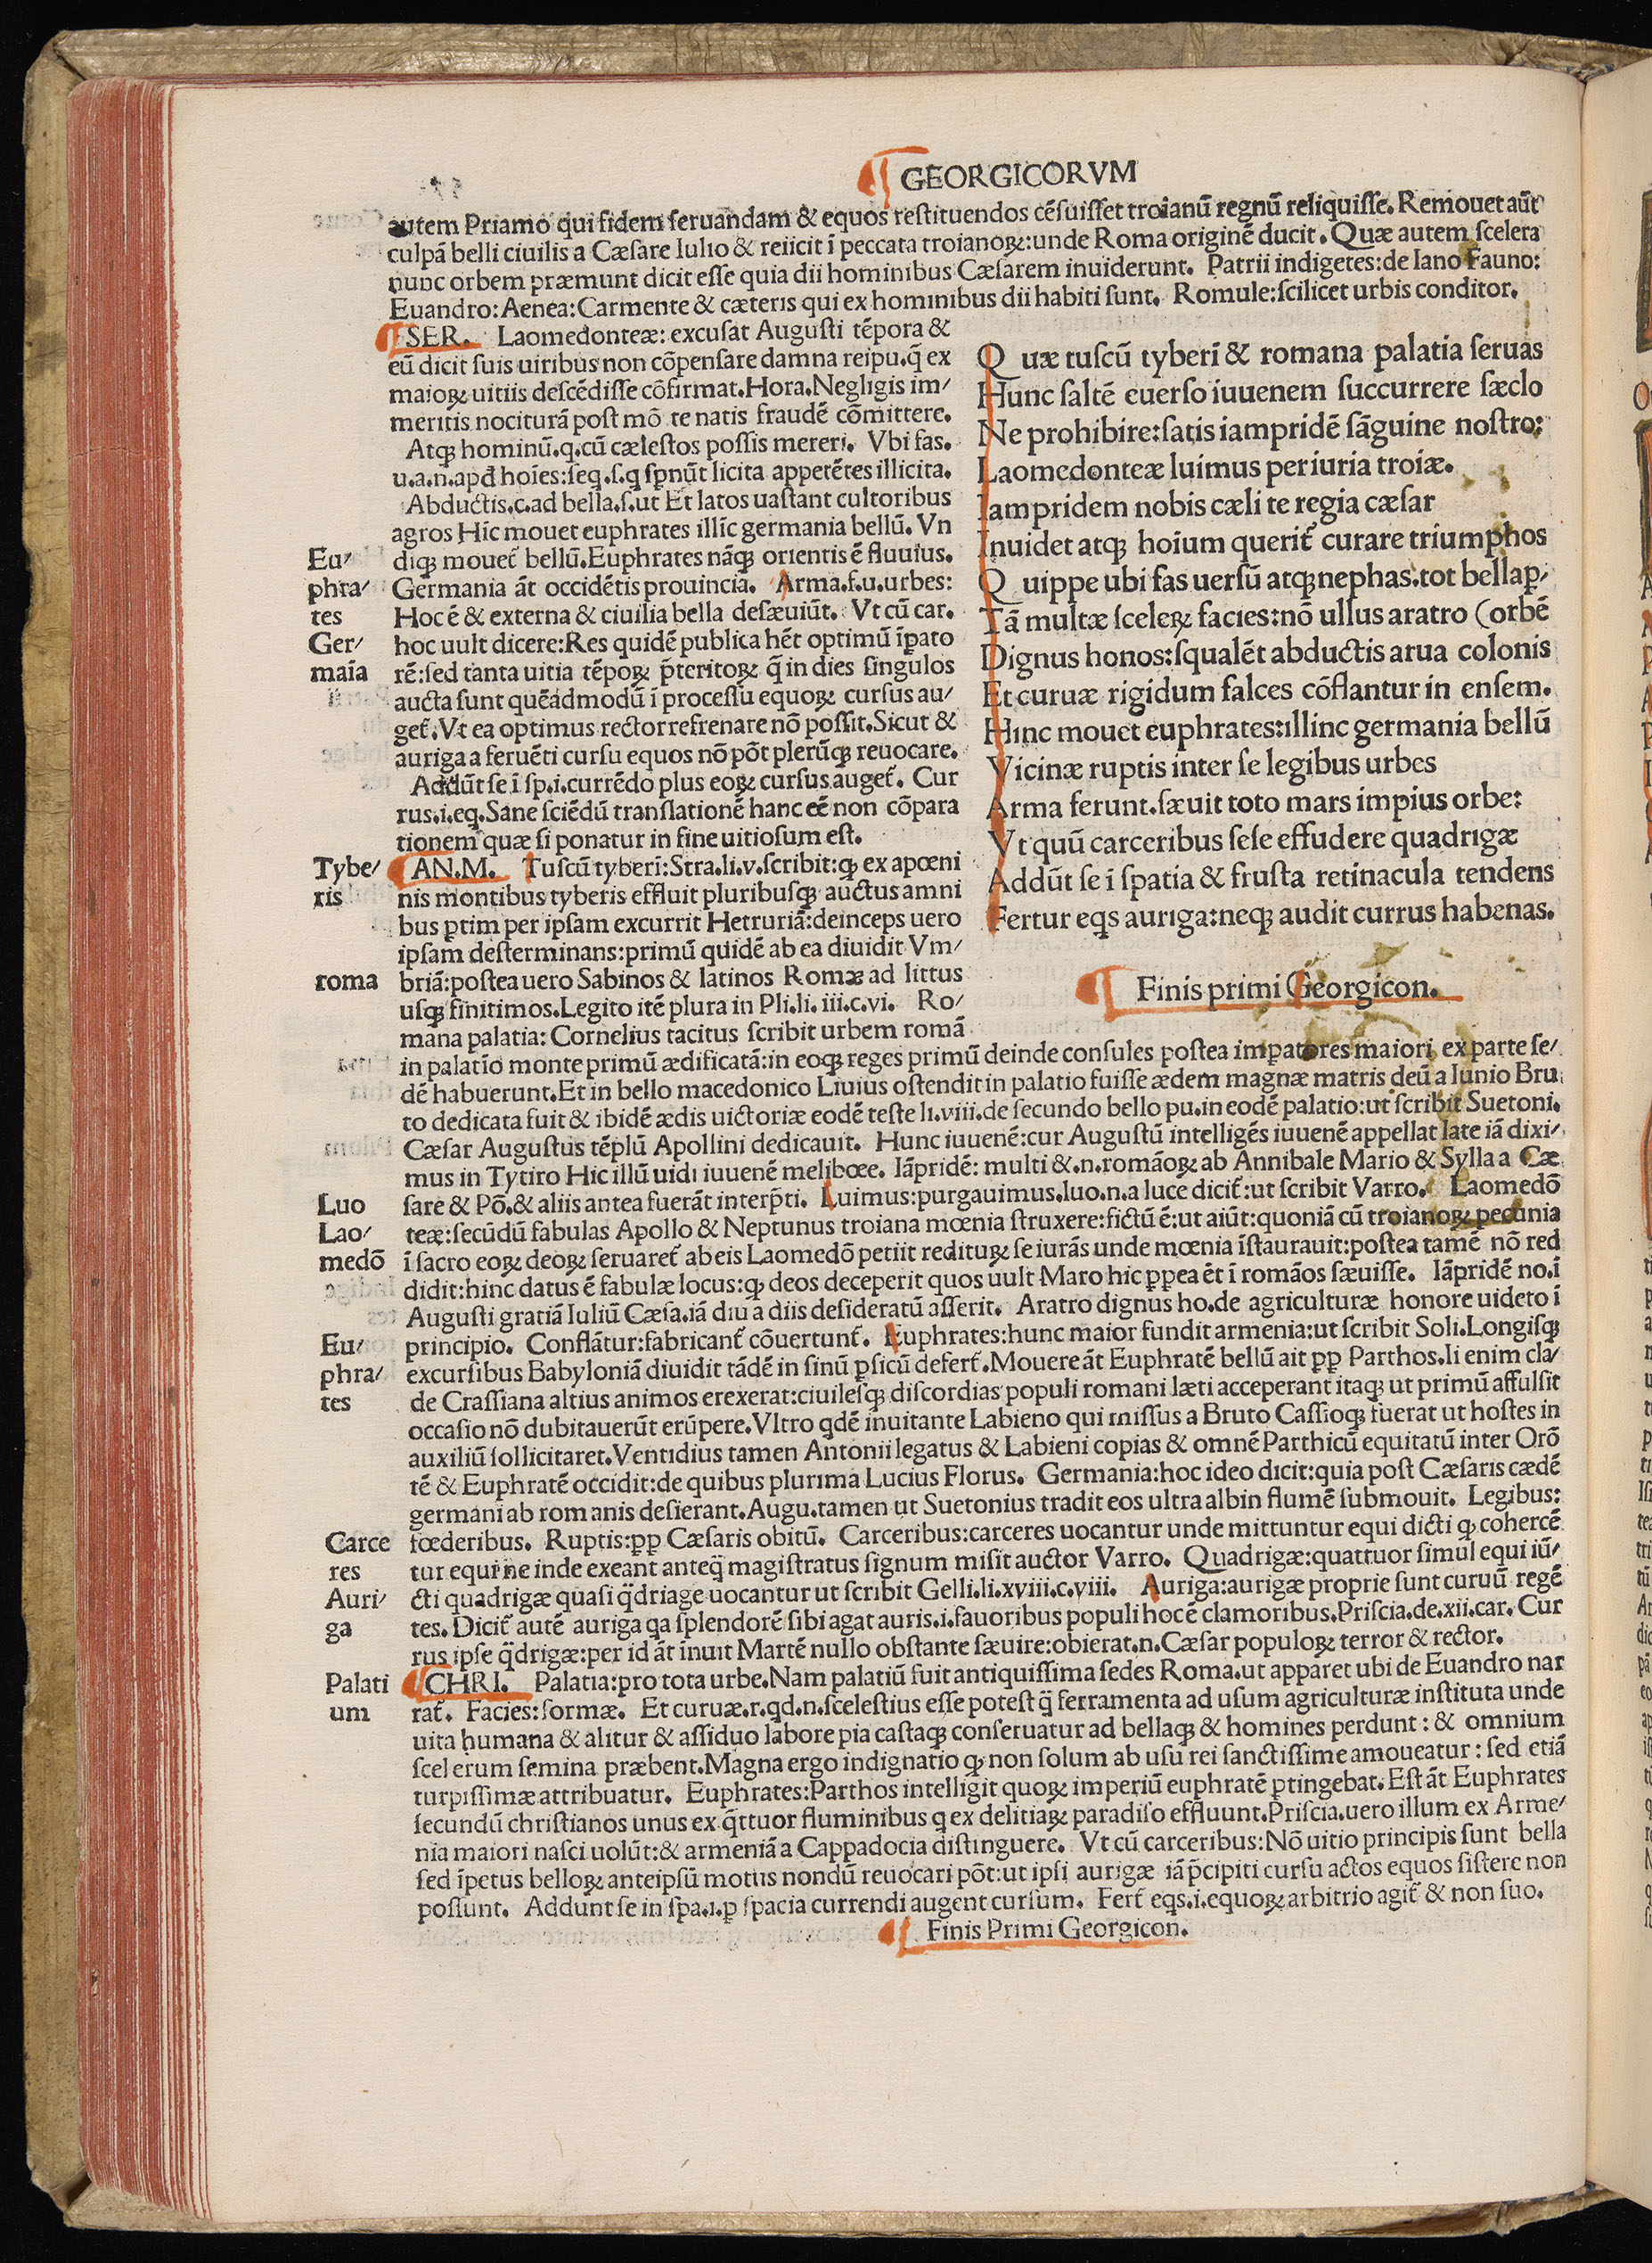 GEORGICORVM
autem Priamo qui fidem ſeruandam & equos reſtituendos cēſuiſſet troianū regnū reliquiſſe. Remouet aūt
culpā belli ciuilis a Cæſare Iulio & reiicit ī peccata troianoꝝ:unde Roma originē ducit. Quæ autem ſcelera
nunc orbem præmunt dicit eſſe quia dii hominibus Cæſarem inuiderunt. Patrii indigetes:de Iano Fauno:
Euandro:Aenea:Carmente & cæteris qui ex hominibus dii habiti ſunt. Romule:ſcilicet urbis conditor.
¶ SER. Laomedonteæ: excuſat Auguſti tēpora &
eū dicit ſuis uiribus non cōpenſare damna reipu.q̄ ex
maioꝝ uitiis deſcēdiſſe cōfirmat.Hora.Negligis im/
meritis nociturā poſt mō te natis fraudē cōmittere.
Atqꝫ hominū.q.cū cæleſtos poſſis mereri. Vbi fas.
u.a.n.apđ hoīes:ſeq.ſ.q ſpnūt licita appetētes illicita.
Abductis.c.ad bella.ſ.ut Et latos uaſtant cultoribus
agros Hīc mouet euphrates illīc germania bellū. Vn
diqꝫ mouet᷑ bellū.Euphrates nāqꝫ orientis ē fluuius.
Germania āt occidētis prouincia. Arma.f.u.urbes:
Hoc ē & externa & ciuilia bella deſæuiūt. Vt cū car.
hoc uult dicere:Res quidē publica hēt optimū īpato
rē:ſed tanta uitia tēpoꝝ p̄teritoꝝ q̄ in dies ſingulos
aucta ſunt quēadmodū ī proceſſu equoꝝ curſus au/
get᷑.Vt ea optimus rector refrenare nō poſſit.Sicut &
auriga a feruēti curſu equos nō pōt plerūqꝫ reuocare.
Addūt ſe ī ſp.i.currēdo plus eoꝝ curſus auget᷑. Cur
rus.i.eq.Sane ſciēdū tranſlationē hanc eē non cōpara
tionem quæ ſi ponatur in fine uitioſum eſt.
¶ AN.M. Tuſcū tyberī:Stra.li.v.ſcribit:ꝙ ex apœni
nis montibus tyberis effluit pluribuſqꝫ auctus amni
bus ꝑtim per ipſam excurrit Hetruriā:deinceps uero
ipſam deſterminans:primū quidē ab ea diuidit Vm/
briā:poſtea uero Sabinos & latinos Romæ ad littus
uſqꝫ finitimos.Legito itē plura in Pli.li. iii.c.vi. Ro/
mana palatia: Cornelius tacitus ſcribit urbem romā
Eu/
phra/
tes
Ger/
maīa
Tybe/
ris
roma
Q uæ tuſcū tyberī & romana palatia ſeruas
Hunc ſaltē euerſo iuuenem ſuccurrere ſæclo
Ne prohibire:ſatis iampridē ſāguine noſtro:
Laomedonteæ luimus periuria troiæ.
Iampridem nobis cæli te regia cæſar
Inuidet atqꝫ hoīum querit᷑ curare triumphos
Q uippe ubi fas uerſū atqꝫ nephas.tot bella ꝑ/
Tā multæ ſceleꝝ facies:nō ullus aratro (orbē
Dignus honos:ſqualēt abductis arua colonis
Et curuæ rigidum falces cōflantur in enſem.
Hinc mouet euphrates:illinc germania bellū
Vicinæ ruptis inter ſe legibus urbes
Arma ferunt.ſæuit toto mars impius orbe:
Vt quū carceribus ſeſe effudere quadrigæ
Addūt ſe ī ſpatia & fruſta retinacula tendens
Fertur eqs auriga:neqꝫ audit currus habenas.
¶ Finis primi Georgicon.
in palatio monte primū ædificatā:in eoqꝫ reges primū deinde conſules poſtea impatores maiori ex parte ſe/
dē habuerunt.Et in bello macedonico Liuius oſtendit in palatio fuiſſe ædem magnæ matris deū a Iunio Bru
to dedicata fuit & ibidē ædis uictoriæ eodē teſte li.viii.de ſecundo bello pu.in eodē palatio:ut ſcribit Suetoni.
Cæſar Auguſtus tēplū Apollini dedicauit. Hunc iuuenē:cur Auguſtū intelligēs iuuenē appellat late iā dixi/
mus in Tytiro Hic illū uidi iuuenē melibœe. Iāpridē: multi &.n.romāoꝝ ab Annibale Mario & Sylla a Cæ
ſare & Pō.& aliis antea fuerāt interp̄ti. Luimus:purgauimus.luo.n.a luce dicit᷑:ut ſcribit Varro. Laomedō
teæ:ſecūdū fabulas Apollo & Neptunus troiana mœnia ſtruxere:fictū ē:ut aiūt:quoniā cū troianoꝝ pecunia
ī ſacro eoꝝ deoꝝ ſeruaret᷑ ab eis Laomedō petiit redituꝝ ſe iurās unde mœnia īſtaurauit:poſtea tamē nō red
didit:hinc datus ē fabulæ locus:ꝙ deos deceperit quos uult Maro hic ꝓpea ēt ī romāos ſæuiſſe. Iāpridē no.ī
Auguſti gratiā Iuliū Cæſa.iā diu a diis deſideratū aſſerit. Aratro dignus ho.de agriculturæ honore uideto ī
principio. Conflātur:fabricant᷑ cōuertunt᷑. Euphrates:hunc maior fundit armenia:ut ſcribit Soli.Longiſqꝫ
excurſibus Babyloniā diuidit tādē in ſinū ꝑſicū defert᷑.Mouere āt Euphratē bellū ait ꝓꝑ Parthos.Ii enim cla/
de Craſſiana altius animos erexerat:ciuileſqꝫ diſcordias populi romani læti acceperant itaqꝫ ut primū affulſit
occaſio nō dubitauerūt erūpere.Vltro qdē inuitante Labieno qui miſſus a Bruto Caſſioqꝫ fuerat ut hoſtes in
auxiliū ſollicitaret.Ventidius tamen Antonii legatus & Labieni copias & omnē Parthicū equitatū inter Orō
tē & Euphratē occidit:de quibus plurima Lucius Florus. Germania:hoc ideo dicit:quia poſt Cæſaris cædē
germani ab romanis deſierant.Augu.tamen ut Suetonius tradit eos ultra albin flumē ſubmouit. Legibus:
fœderibus. Ruptis:ꝓꝑ Cæſaris obitū. Carceribus:carceres uocantur unde mittuntur equi dicti ꝙ cohercē
tur equi ne inde exeant anteq̄ magiſtratus ſignum miſit auctor Varro. Quadrigæ:quattuor ſimul equi iū/
cti quadrigæ quaſi q̄driage uocantur ut ſcribit Gelli.li.xviii.c.viii. Auriga:aurigæ proprie ſunt curuū regē
tes. Dicit᷑ autē auriga qa ſplendorē ſibi agat auris.i.fauoribus populi hocē clamoribus.Priſcia.de.xii.car. Cur
rus ipſe q̄drigæ:per id āt īnuit Martē nullo obſtante ſæuire:obierat.n.Cæſar populoꝝ terror & rector.
¶ CHRI. Palatia:pro tota urbe.Nam palatiū fuit antiquiſſima ſedes Roma.ut apparet ubi de Euandro nar
rat᷑. Facies:formæ. Et curuæ.r.qd.n.ſceleſtius eſſe poteſt q̄ ferramenta ad uſum agriculturæ inſtituta unde
uita humana & alitur & aſſiduo labore pia caſtaqꝫ conſeruatur ad bellaqꝫ & homines perdunt: & omnium
ſcelerum ſemina præbent.Magna ergo indignatio ꝙ non ſolum ab uſu rei ſanctiſſime amoueatur: ſed etiā
turpiſſimæ attribuatur. Euphrates:Parthos intelligit quoꝝ imperiū euphratē ꝑtingebat.Eſt āt Euphrates
ſecundū chriſtianos unus ex q̄ttuor fluminibus q ex delitiaꝝ paradiſo effluunt.Priſcia.uero illum ex Arme/
nia maiori naſci uolūt:& armeniā a Cappadocia diſtinguere. Vt cū carceribus:Nō uitio principis ſunt bella
ſed īpetus belloꝝ anteipſū motus nondū reuocari pōt:ut ipſi aurigæ iā p̄cipiti curſu actos equos ſiſtere non
poſſunt. Addunt ſe in ſpa.i.ꝑ ſpacia currendi augent curſum. Fert᷑ eqs.i.equoꝝ arbitrio agit᷑ & non ſuo.
Luo
Lao/
medō
Eu/
phra/
tes
Carce
res
Auri/
ga
Palati
um
¶ Finis Primi Georgicon.